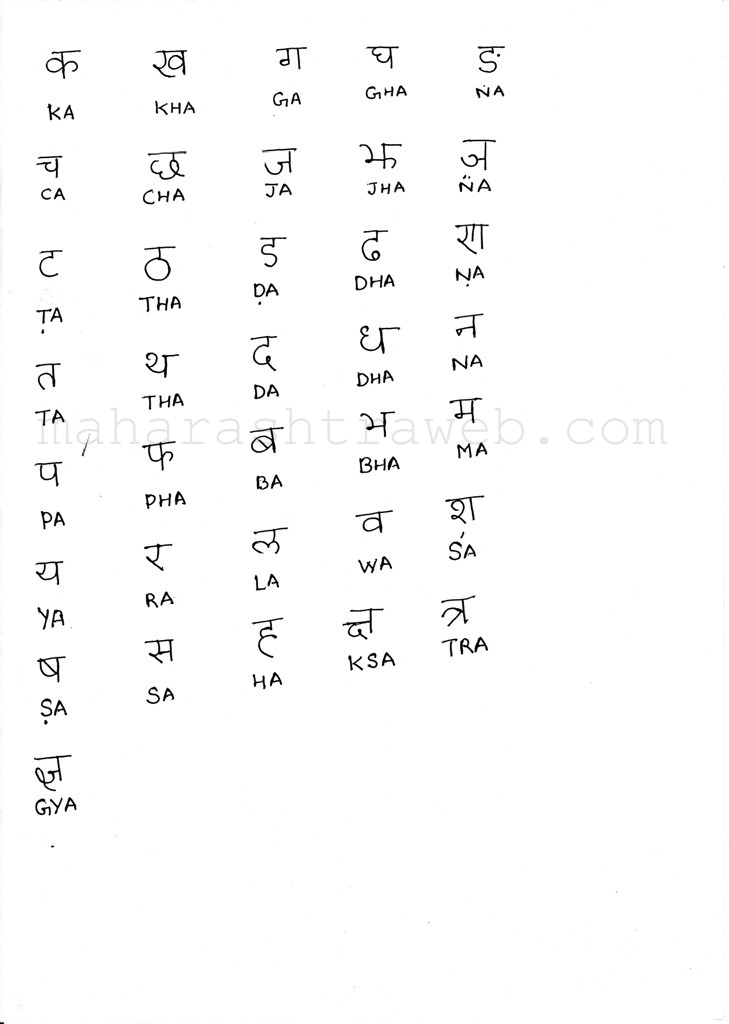 क ख ग घ ङ
KA KHA GA GHA ṄA
च छ ज झ ञ
CA CHA JA JHA N̈A
ट ठ ड ढ ण
ṬA THA ḌA DHA ṆA
त थ द ध न
TA THA DA DHA NA
maharashtraweb.com
प फ ब भ म
PA PHA BA BHA MA
य र ल व श
YA RA LA WA ŚA
ष स ह क्ष त्र
ṢA SA HA KSA TRA
ज्ञ
GYA